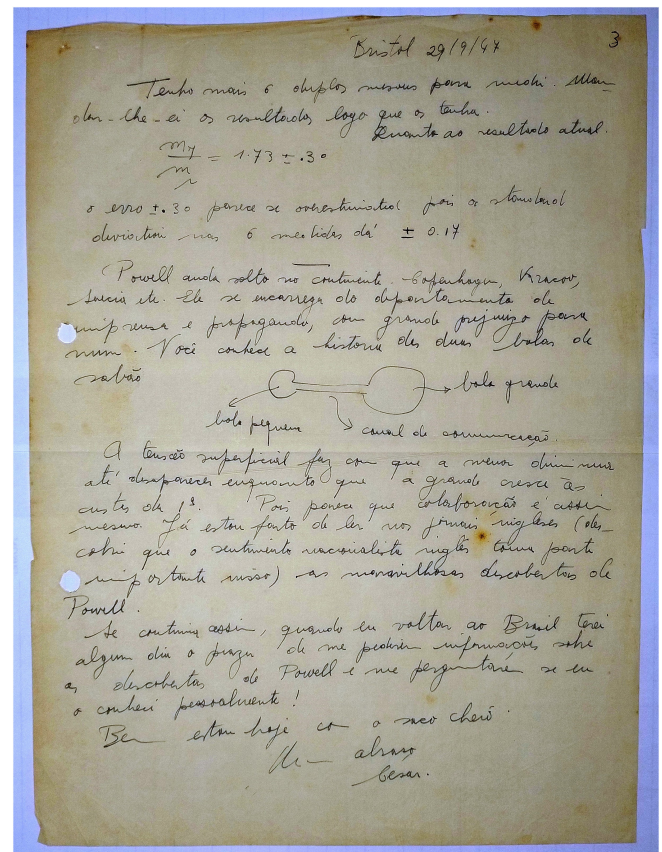 Bristol 29/9/47
3
Tenho mais 6 duplos mesons para medir. Man-
dar-lhe-ei os resultados logo que os tenha.
Quanto ao resultado atual.
mπ/mμ = 1.73 ± .30
o erro ±.30 parece se overestimated pois a standard
deviation nas 6 medidas dá ± 0.17
Powell anda solto no continente - Copenhagen, Kracov,
Suecia etc. Ele se encarrega do departamento de
imprensa e propaganda, com grande prejuizo para
mim. Você conhece a historia das duas bolas de
sabão
bola grande
bola pequena
canal de comunicação.
A tensão superficial faz com que a menor diminua
até desaparecer enquanto que a grande cresce às
custas da 1ª. Pois parece que colaboração é assim
mesmo. Já estou farto de ler nos jornais ingleses (des-
cobri que o sentimento nacionalista inglês toma parte
importante nisso) as maravilhosas descobertas de
Powell.
Se continua assim, quando eu voltar ao Brasil terei
algum dia o prazer de me pedirem informações sobre
as descobertas de Powell e me perguntarem se eu
o conheci pessoalmente!
Bem estou hoje com o saco cheio.
Um abraço
Cesar.